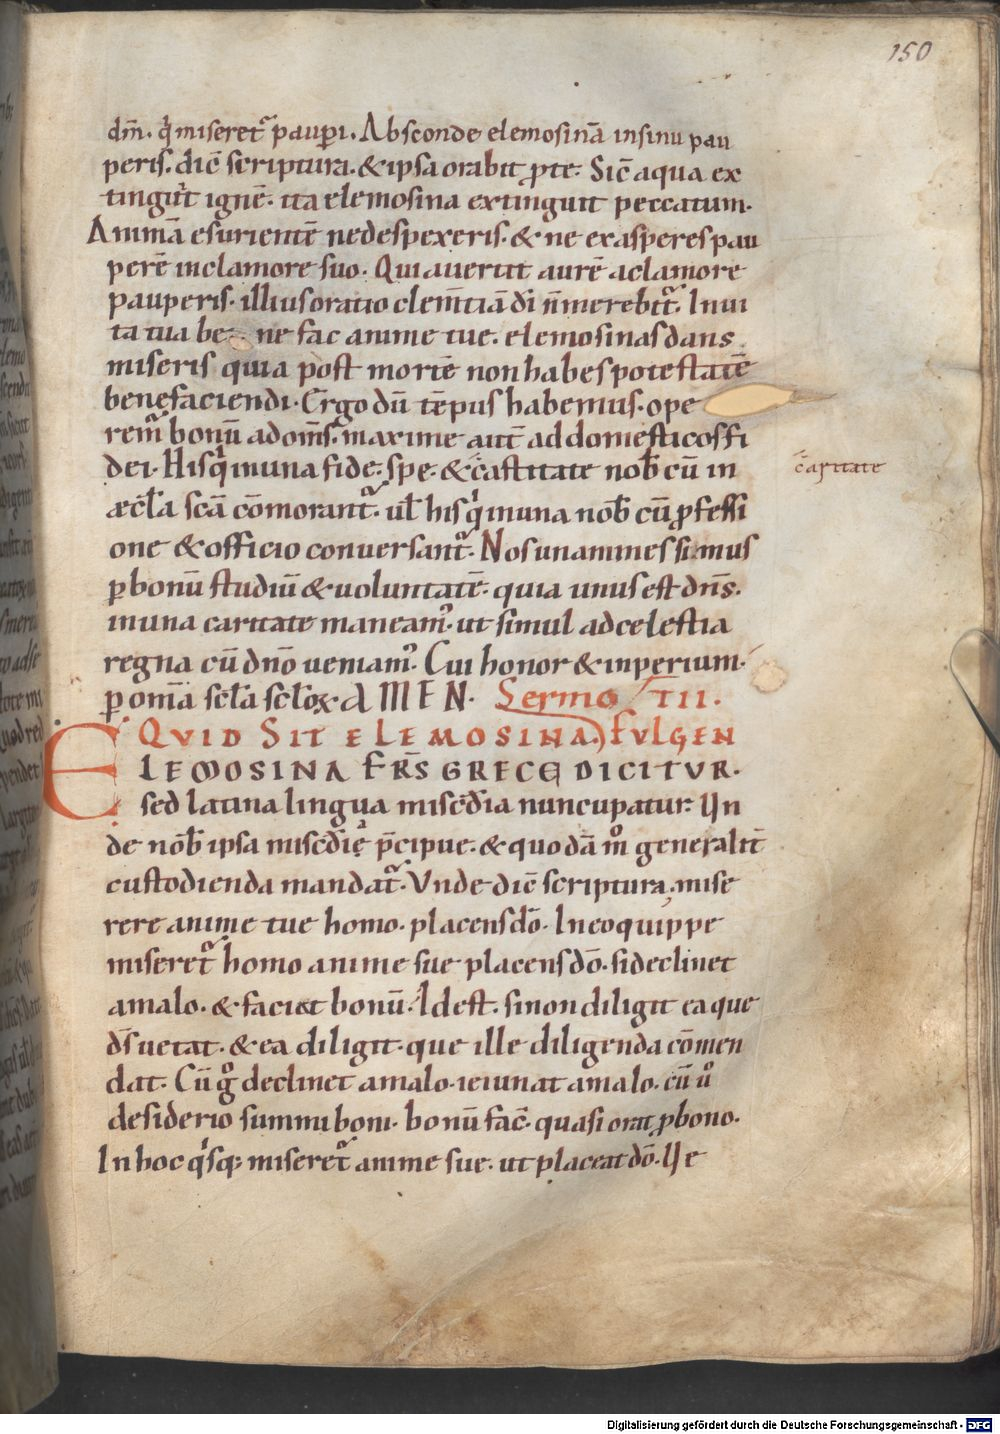 150
dm̄. qͥ miseret᷑ pauꝑi. Absconde elemosinā insinu pau
peris. dic̄ scriptura. & ipsa orabit ꝓte. Sic̄ aqua ex
tinguit ignē. ita elemosina extinguit peccatum.
Animā esurientē nedespexeris. & ne exasperes pau
perē inclamore suo. Qui auertit aurē aclamore
pauperis. illius oratio clem̄tiā dī n̄ merebit᷑. In ui
ta tua be ne fac anime tue. elemosinas dans
miseris quia post mortē non habes potestatē
benefaciendi. Ergo dū tēpus habemus. ope
rem᷑ bonū adom̄s. maxime aut̄ ad domesticos fi
dei. His qͥ in una fide. spe. & c̄astitate nob̄ cū in
æcl̄a scā cōmorant᷑. ul̄ his qͥ in una nob̄ cū ꝓfessi
c̄aritate
one & officio conuersant᷑. Nos unanimes simus
ꝑ bonū studiū & uoluntatē. quia unus est dn̄s.
in una caritate maneam᷒. ut simul ad celestia
regna cū dn̄o ueniam᷒. Cui honor & inperium.
ꝑ om̄a scl̄a scl̄oꝝ. AMEN. Sermo TII.
QVID SIT ELEMOSINA. FVLGEN
ELEMOSINA FR̄S GRECE DICITVR.
sed latina lingua misc̄dia nuncupatur. Un
de nob̄ ipsa misc̄dię p̄cipue. & quodā m̊ generalit̄
custodienda mandat᷑. Vnde dic̄ scriptura. mise
rere anime tue homo. placens dō. In eo quippe
miseret᷑ homo anime sue placens dō. si declinet
a malo. & faciat bonū. Id est. si non diligit ea que
ds̄ uetat. & ea diligit. que ille diligenda cōmen
dat. Cū g̊ declinet a malo. ieiunat a malo. cū ů
desiderio summi boni. bonū fac̄. quasi orat ꝓ bono.
In hoc qͥsq; miseret᷑ anime sue. ut placeat dō. Ne
Digitalisierung gefördert durch die Deutsche Forschungsgemeinschaft - DFG